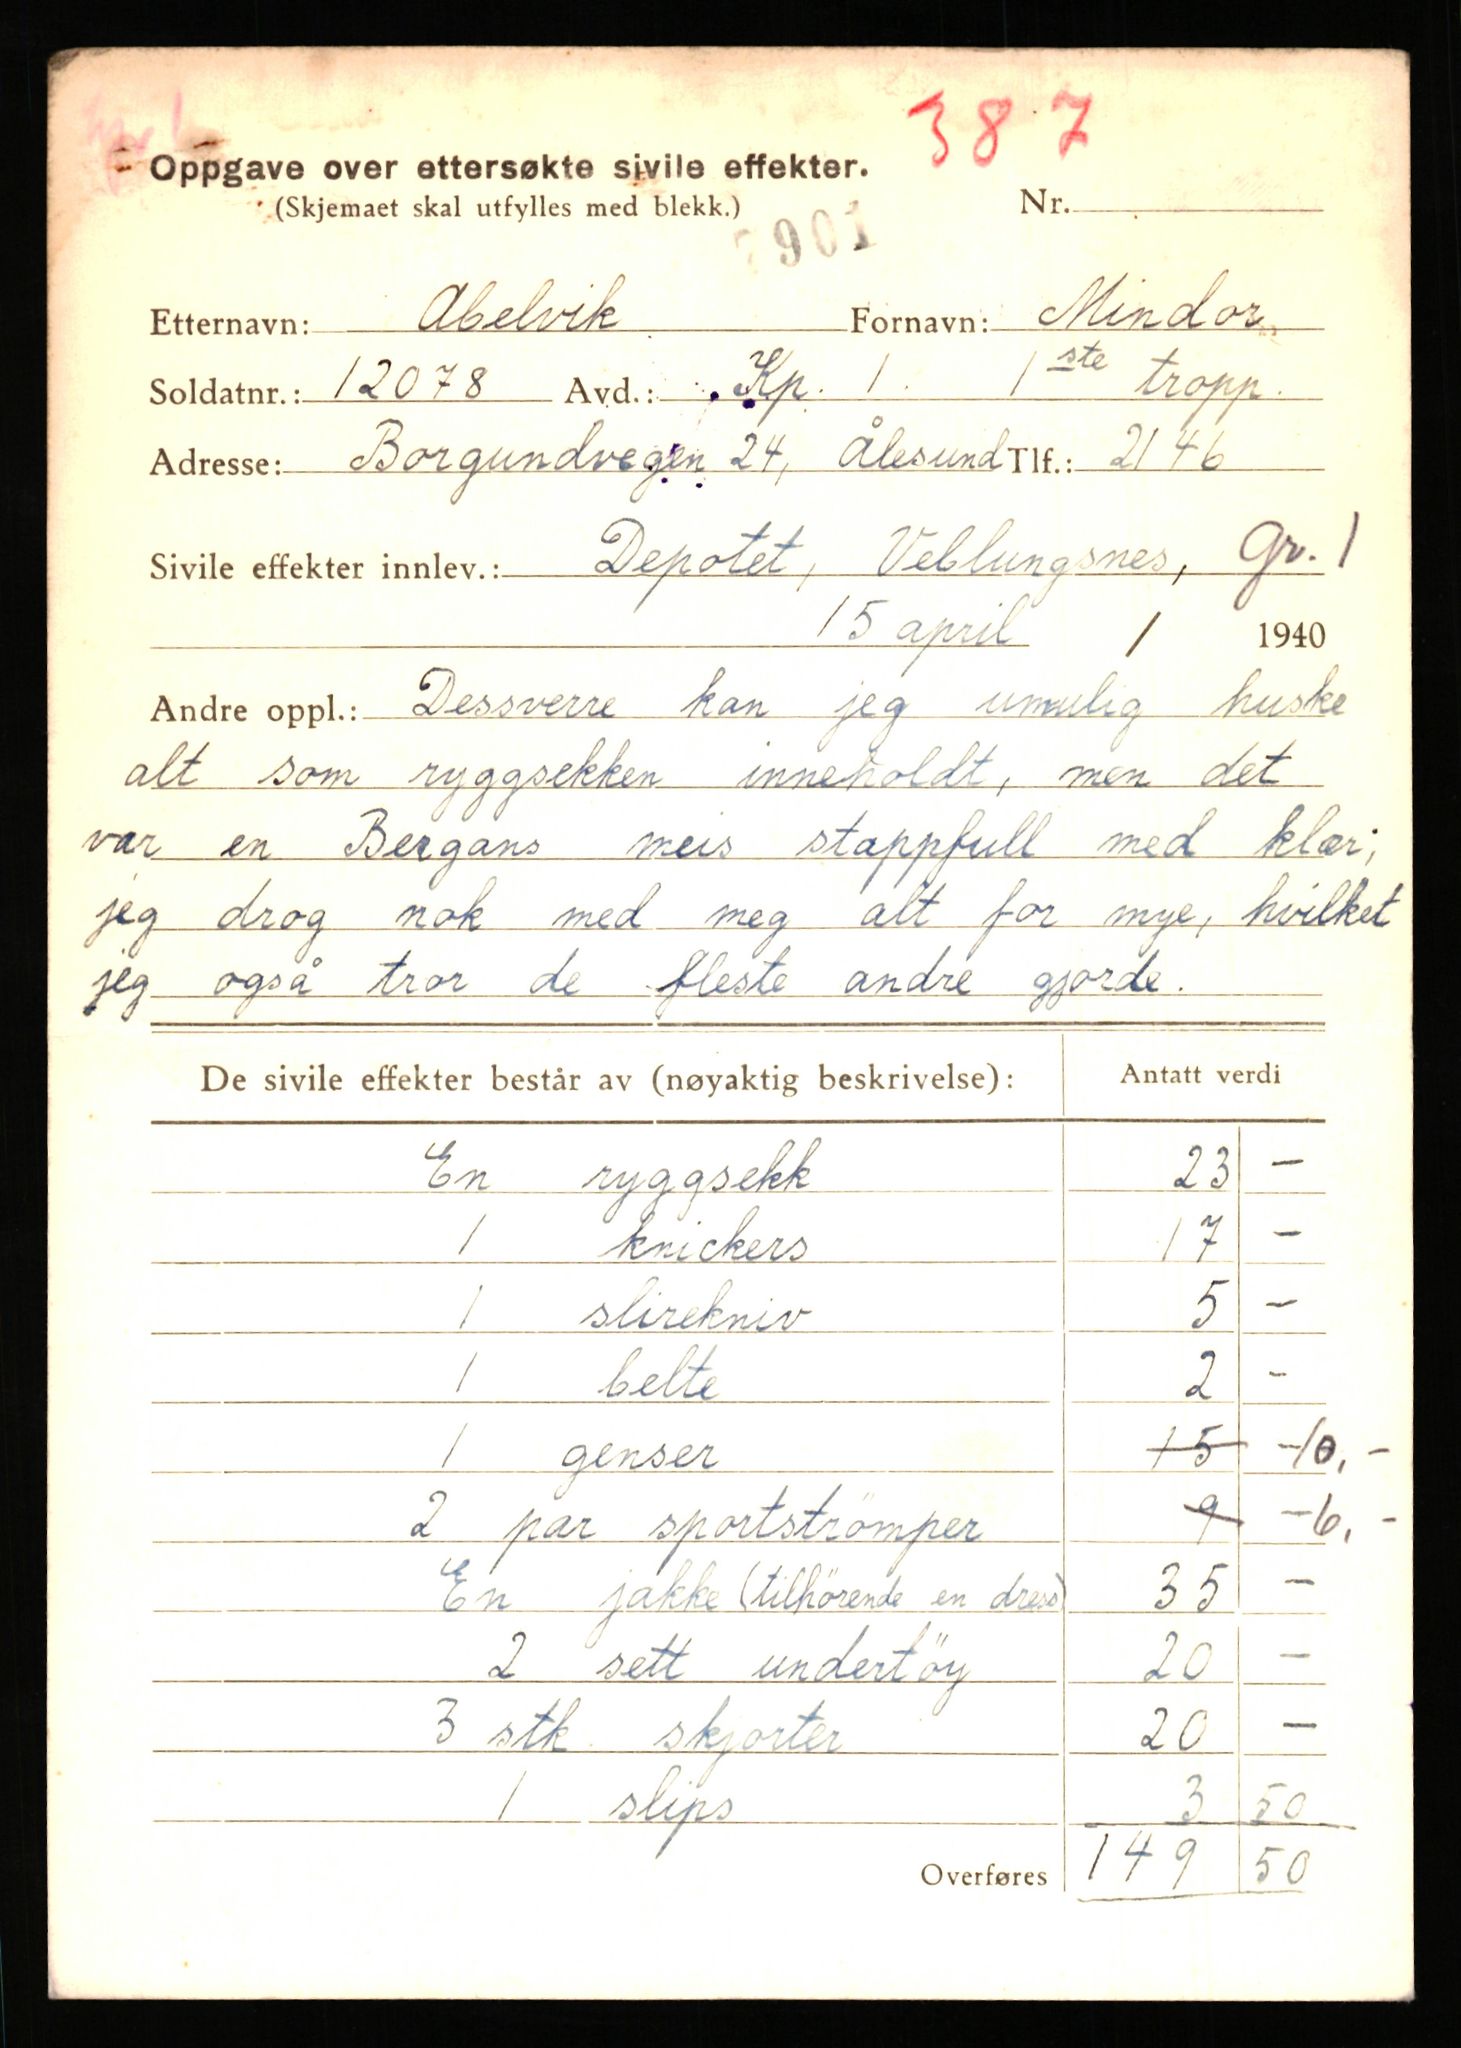 387
Oppgave over ettersøkte sivile effekter.
(Skjemaet skal utfylles med blekk.)
Nr.
901
Etternavn: Abelvik Fornavn: Mindor
Soldatnr.: 12078 Avd.: Kp. 1. 1ste tropp.
Adresse: Borgundvegen 24, Ålesund Tlf.: 2146
Sivile effekter innlev.: Depotet, Veblungsnes, Gr. 1
15 april / 1940
Andre oppl.: Dessverre kan jeg umulig huske
alt som ryggsekken inneholdt, men det
var en Bergans meis stappfull med klær;
jeg drog nok med meg alt for mye, hvilket
jeg også tror de fleste andre gjorde.
De sivile effekter består av (nøyaktig beskrivelse): Antatt verdi
En ryggsekk 23 -
1 knickers 17 -
1 slirekniv 5 -
1 belte 2 -
1 genser 15 - 10,-
2 par sportströmper 9 - 6,-
En jakke (tilhörende en dress) 35 -
2 sett undertöy 20 -
3 stk. skjorter 20 -
1 slips 3 50
Overføres 149 50